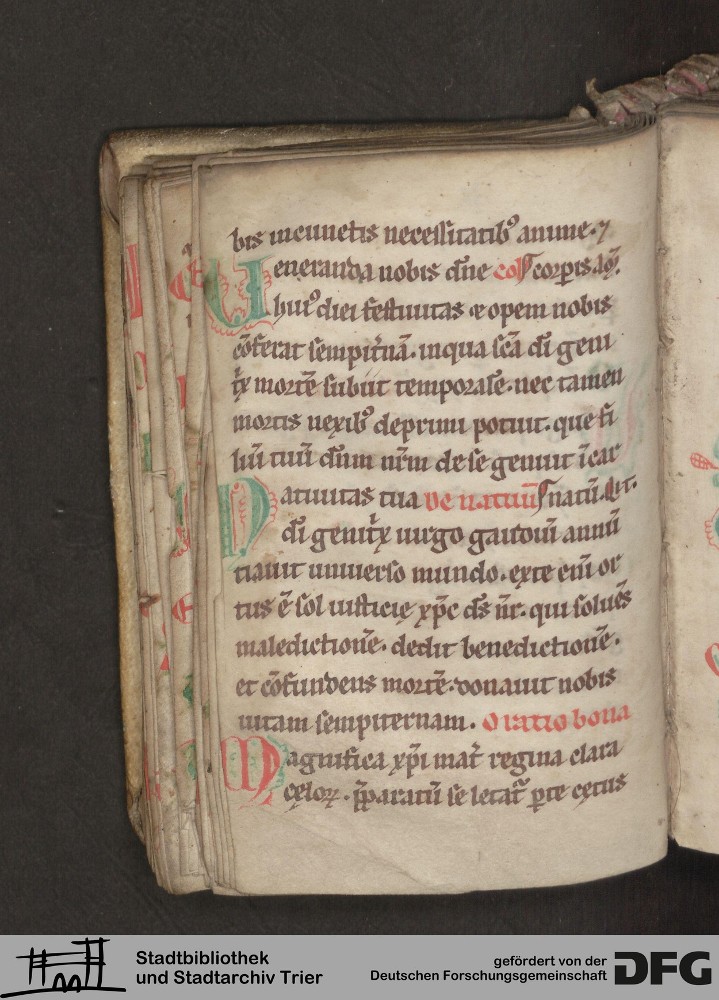 bis incunctis necessitatib⁹ anime. ⁊
Ueneranda nobis dn̄e coll̄ corp̄is
hui⁹ diei festiuitas & opem nobis
cōferat sempit̄nā. in qua sc̄a dī geni
t̄x mortē subiit temporalē. nec tamen
mortis nexib⁹ deprimi potuit. que fi
liū tuū dn̄m nr̄m de se genuit īcar
Natiuitas tua De natiui natū.
dī genit̄x uirgo gaudiū annū
tiauit uniuerso mundo. ex te eni̅ or
tus ē sol iusticię xp̄c ds̄ nr̄. qui soluēs
maledictionē. dedit benedictionē.
et cōfundens mortē. donauit nobis
uitam sempiternam. Oratio bona
Magnifica xp̄i mat̄ regina clara
cęloꝝ. p̄paratū se letat̄ p̄te cętus
Stadtbibliothek
und Stadtarchiv Trier
gefördert von der
Deutschen Forschungsgemeinschaft
DFG